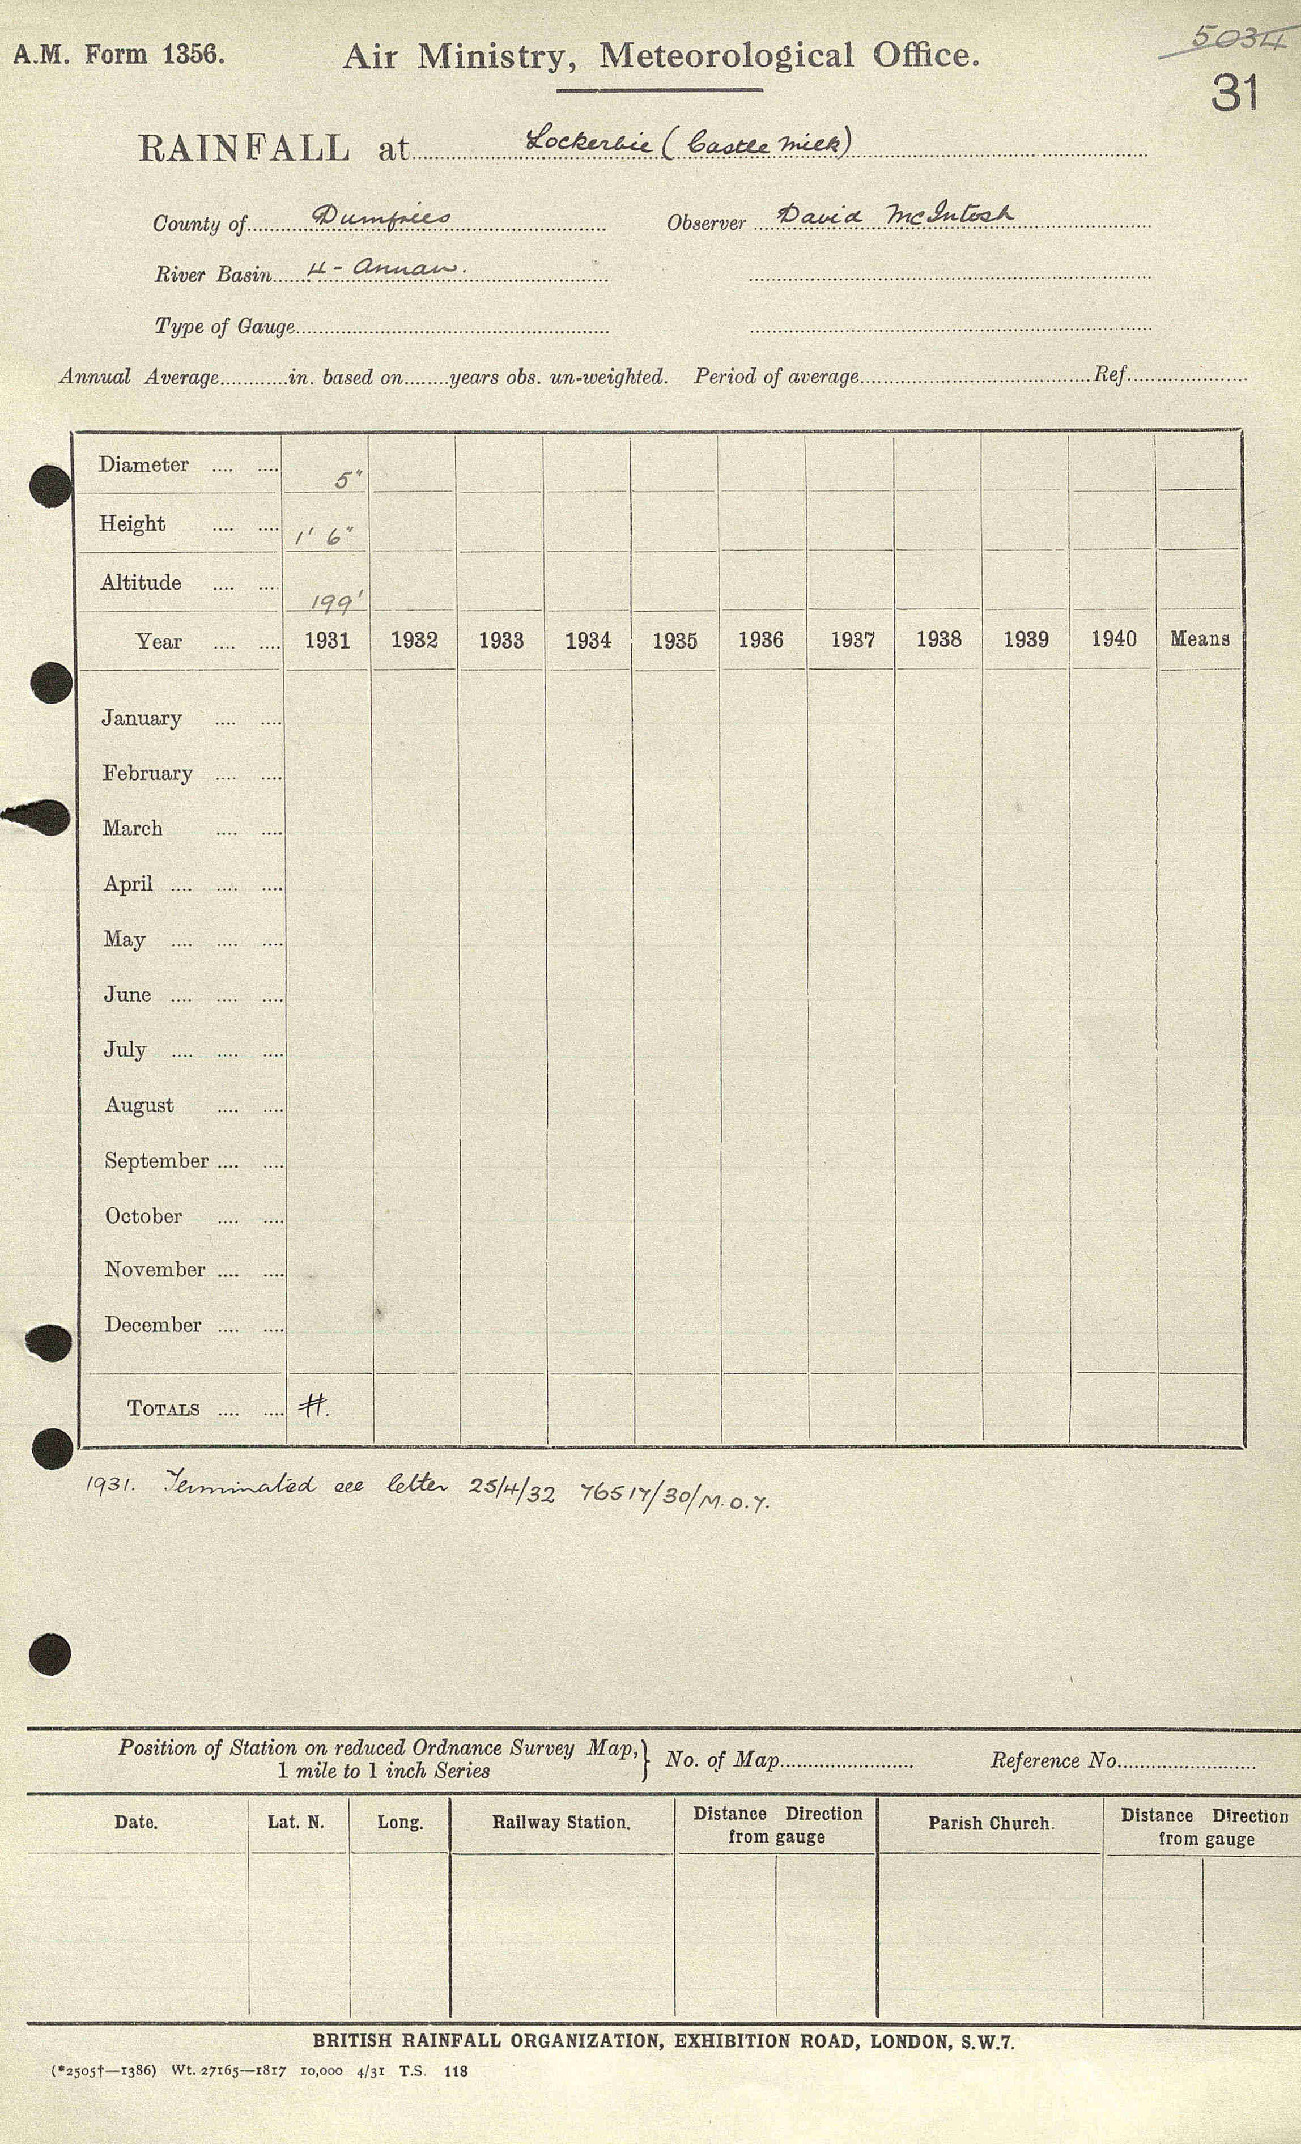 A.M. Form 1356. Air Ministry, Meteorological Office. 5034
31
RAINFALL at Lockerbie (Castle Milk)
County of Dumfries Observer David McIntosh
River Basin 4 - Annan.
Type of Gauge
Annual Average in. based on years obs. un-weighted. Period of average Ref.
Diameter 5"
Height 1' 6"
Altitude 199'
Year 1931 1932 1933 1934 1935 1936 1937 1938 1939 1940 Means
January
February
March
April
May
June
July
August
September
October
November
December
TOTALS #.
1931. Terminated see letter 25/4/32 76517/30/M.O.7.
Position of Station on reduced Ordnance Survey Map, } No. of Map Reference No.
1 mile to 1 inch Series
Date. Lat. N. Long. Railway Station. Distance Direction Parish Church. Distance Direction
from gauge from gauge
BRITISH RAINFALL ORGANIZATION, EXHIBITION ROAD, LONDON, S.W.7.
(*2505†—1386) Wt. 27165—1817 10,000 4/31 T.S. 118